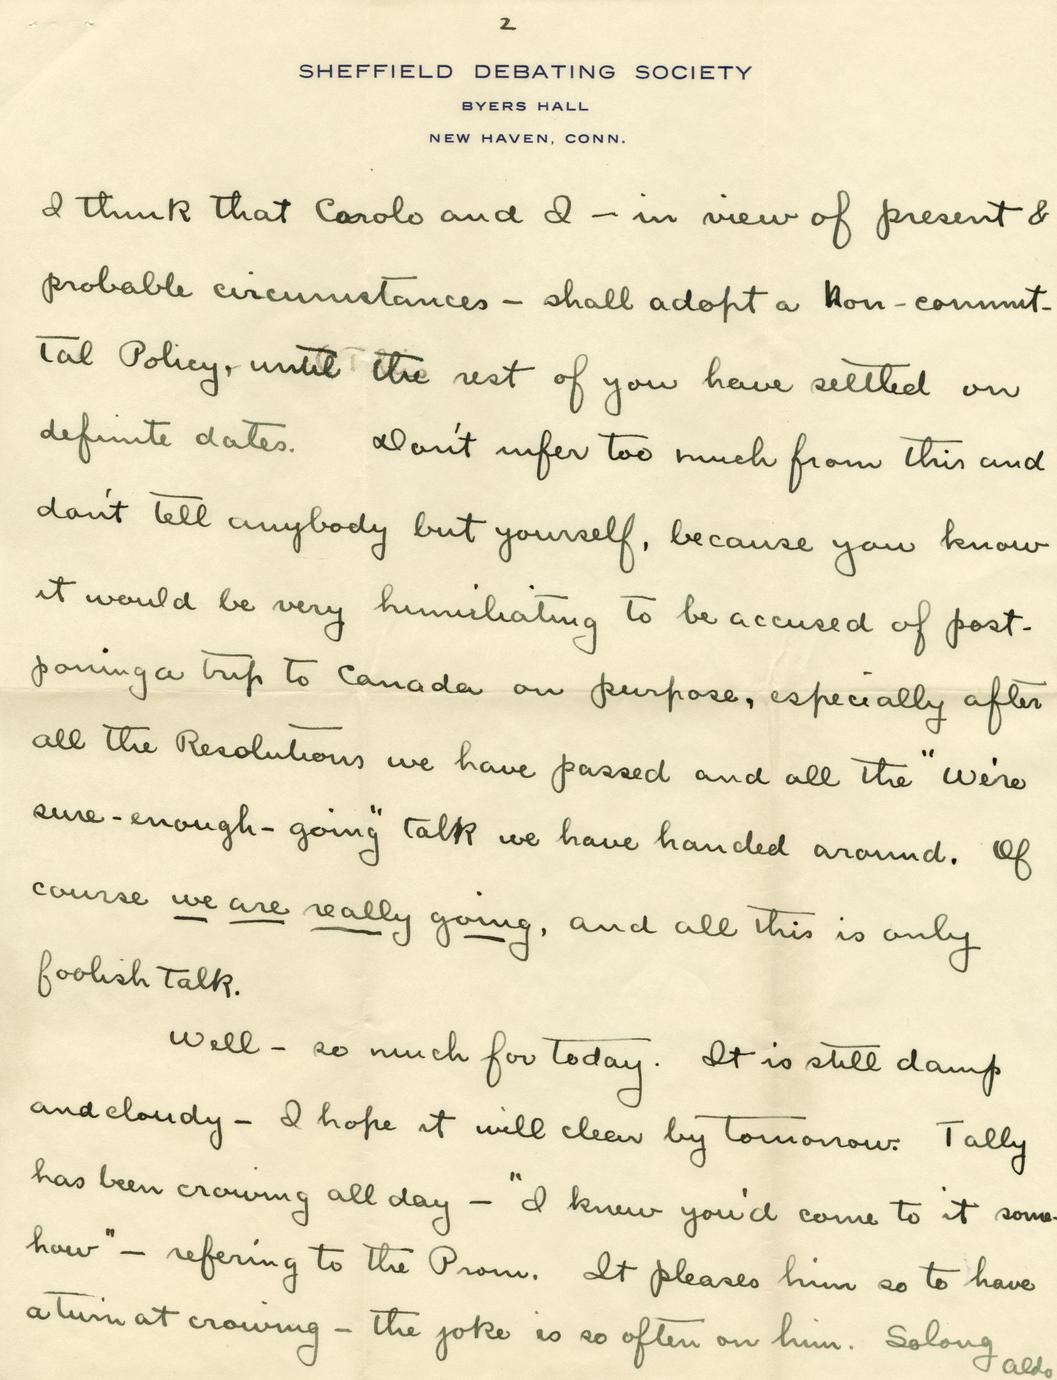 2
SHEFFIELD DEBATING SOCIETY
BYERS HALL
NEW HAVEN, CONN.
I think that Carolo and I – in view of present &
probable circumstances – shall adopt a Non-commit-
tal Policy, until the rest of you have settled on
definite dates. Don't infer too much from this and
don't tell anybody but yourself, because you know
it would be very humiliating to be accused of post-
poning a trip to Canada on purpose, especially after
all the Resolutions we have passed and all the "We're
sure-enough-going" talk we have handed around. Of
course we are really going, and all this is only
foolish talk.
Well – so much for today. It is still damp
and cloudy – I hope it will clear by tomorrow. Tally
has been crowing all day – "I knew you'd come to it some-
how" – refering to the Prom. It pleases him so to have
a turn at crowing – the joke is so often on him. Solong
Aldo